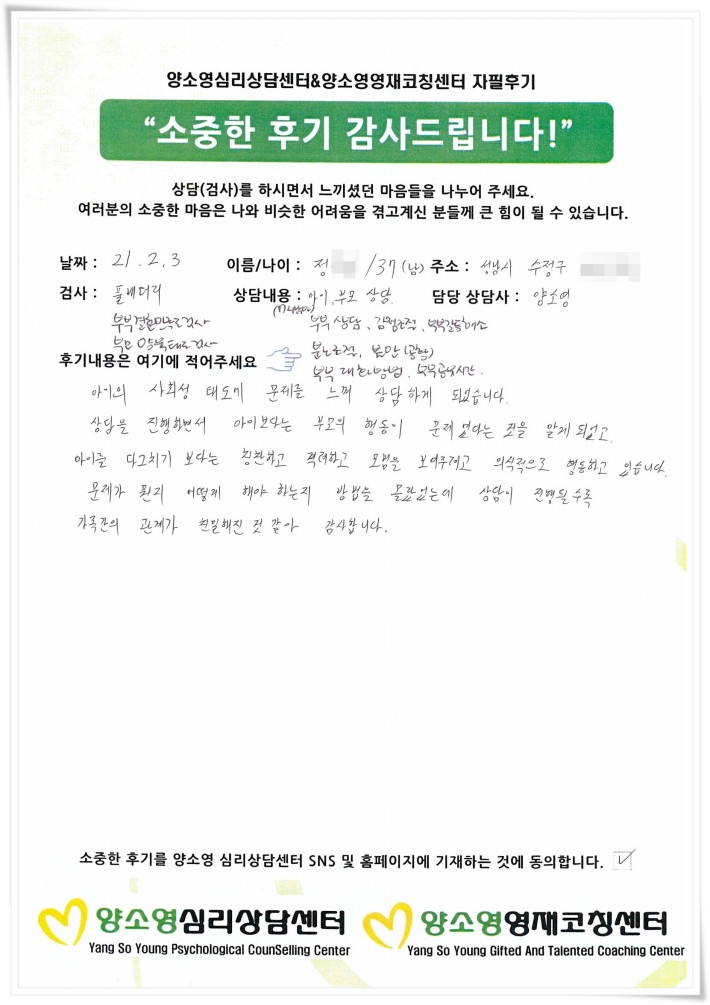 양소영심리상담센터&양소영영재코칭센터 자필후기
“소중한 후기 감사드립니다!”
상담(검사)를 하시면서 느끼셨던 마음들을 나누어 주세요.
여러분의 소중한 마음은 나와 비슷한 어려움을 겪고계신 분들께 큰 힘이 될 수 있습니다.
날짜 : 21. 2. 3 이름/나이 : 정 /37 (남) 주소 : 성남시 수정구
검사 : 풀배터리 상담내용 : 아이, 부모 상담. 담당 상담사 : 양소영
부부결혼만족도검사 부부상담, 감정조직, 부부갈등해소
부모양육태도검사 분노조절, 불안(공황)
후기내용은 여기에 적어주세요 부부 대화방법,
아이의 사회성 태도에 문제를 느껴 상담하게 되었습니다.
상담을 진행하면서 아이보다는 부모의 행동이 문제 였다는 것을 알게되었고,
아이를 다그치기 보다는 칭찬하고 격려하고 모범을 보여주려고 의식적으로 행동하고 있습니다.
문제가 뭔지 어떻게 해야 하는지 방법을 몰랐었는데 상담이 진행될수록
가족간의 관계가 친밀해진 것 같아 감사합니다.
소중한 후기를 양소영 심리상담센터 SNS 및 홈페이지에 기재하는 것에 동의합니다.
양소영심리상담센터
Yang So Young Psychological CounSelling Center
양소영영재코칭센터
Yang So Young Gifted And Talented Coaching Center